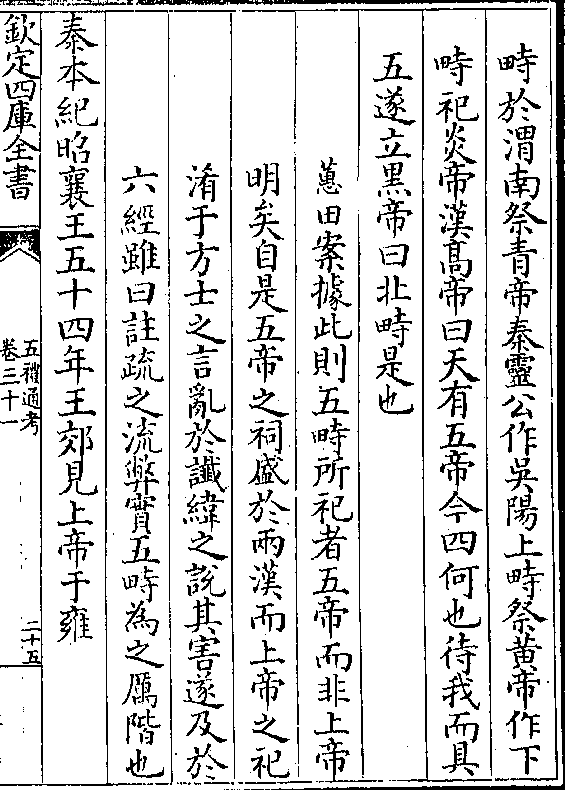 畤於渭南祭青帝秦靈公作吳陽上畤祭黄帝作下
畤祀炎帝漢髙帝曰天有五帝今四何也待我而具
五遂立黒帝曰北畤是也
蕙田案據此則五畤所祀者五帝而非上帝
明矣自是五帝之祠盛於兩漢而上帝之祀
淆于方士之言亂於讖緯之說其害遂及於
六經雖曰註疏之流弊實五畤為之厲階也
秦本紀昭襄王五十四年王郊見上帝于雍
欽定四庫全書
五禮通考
卷三十一
二十五